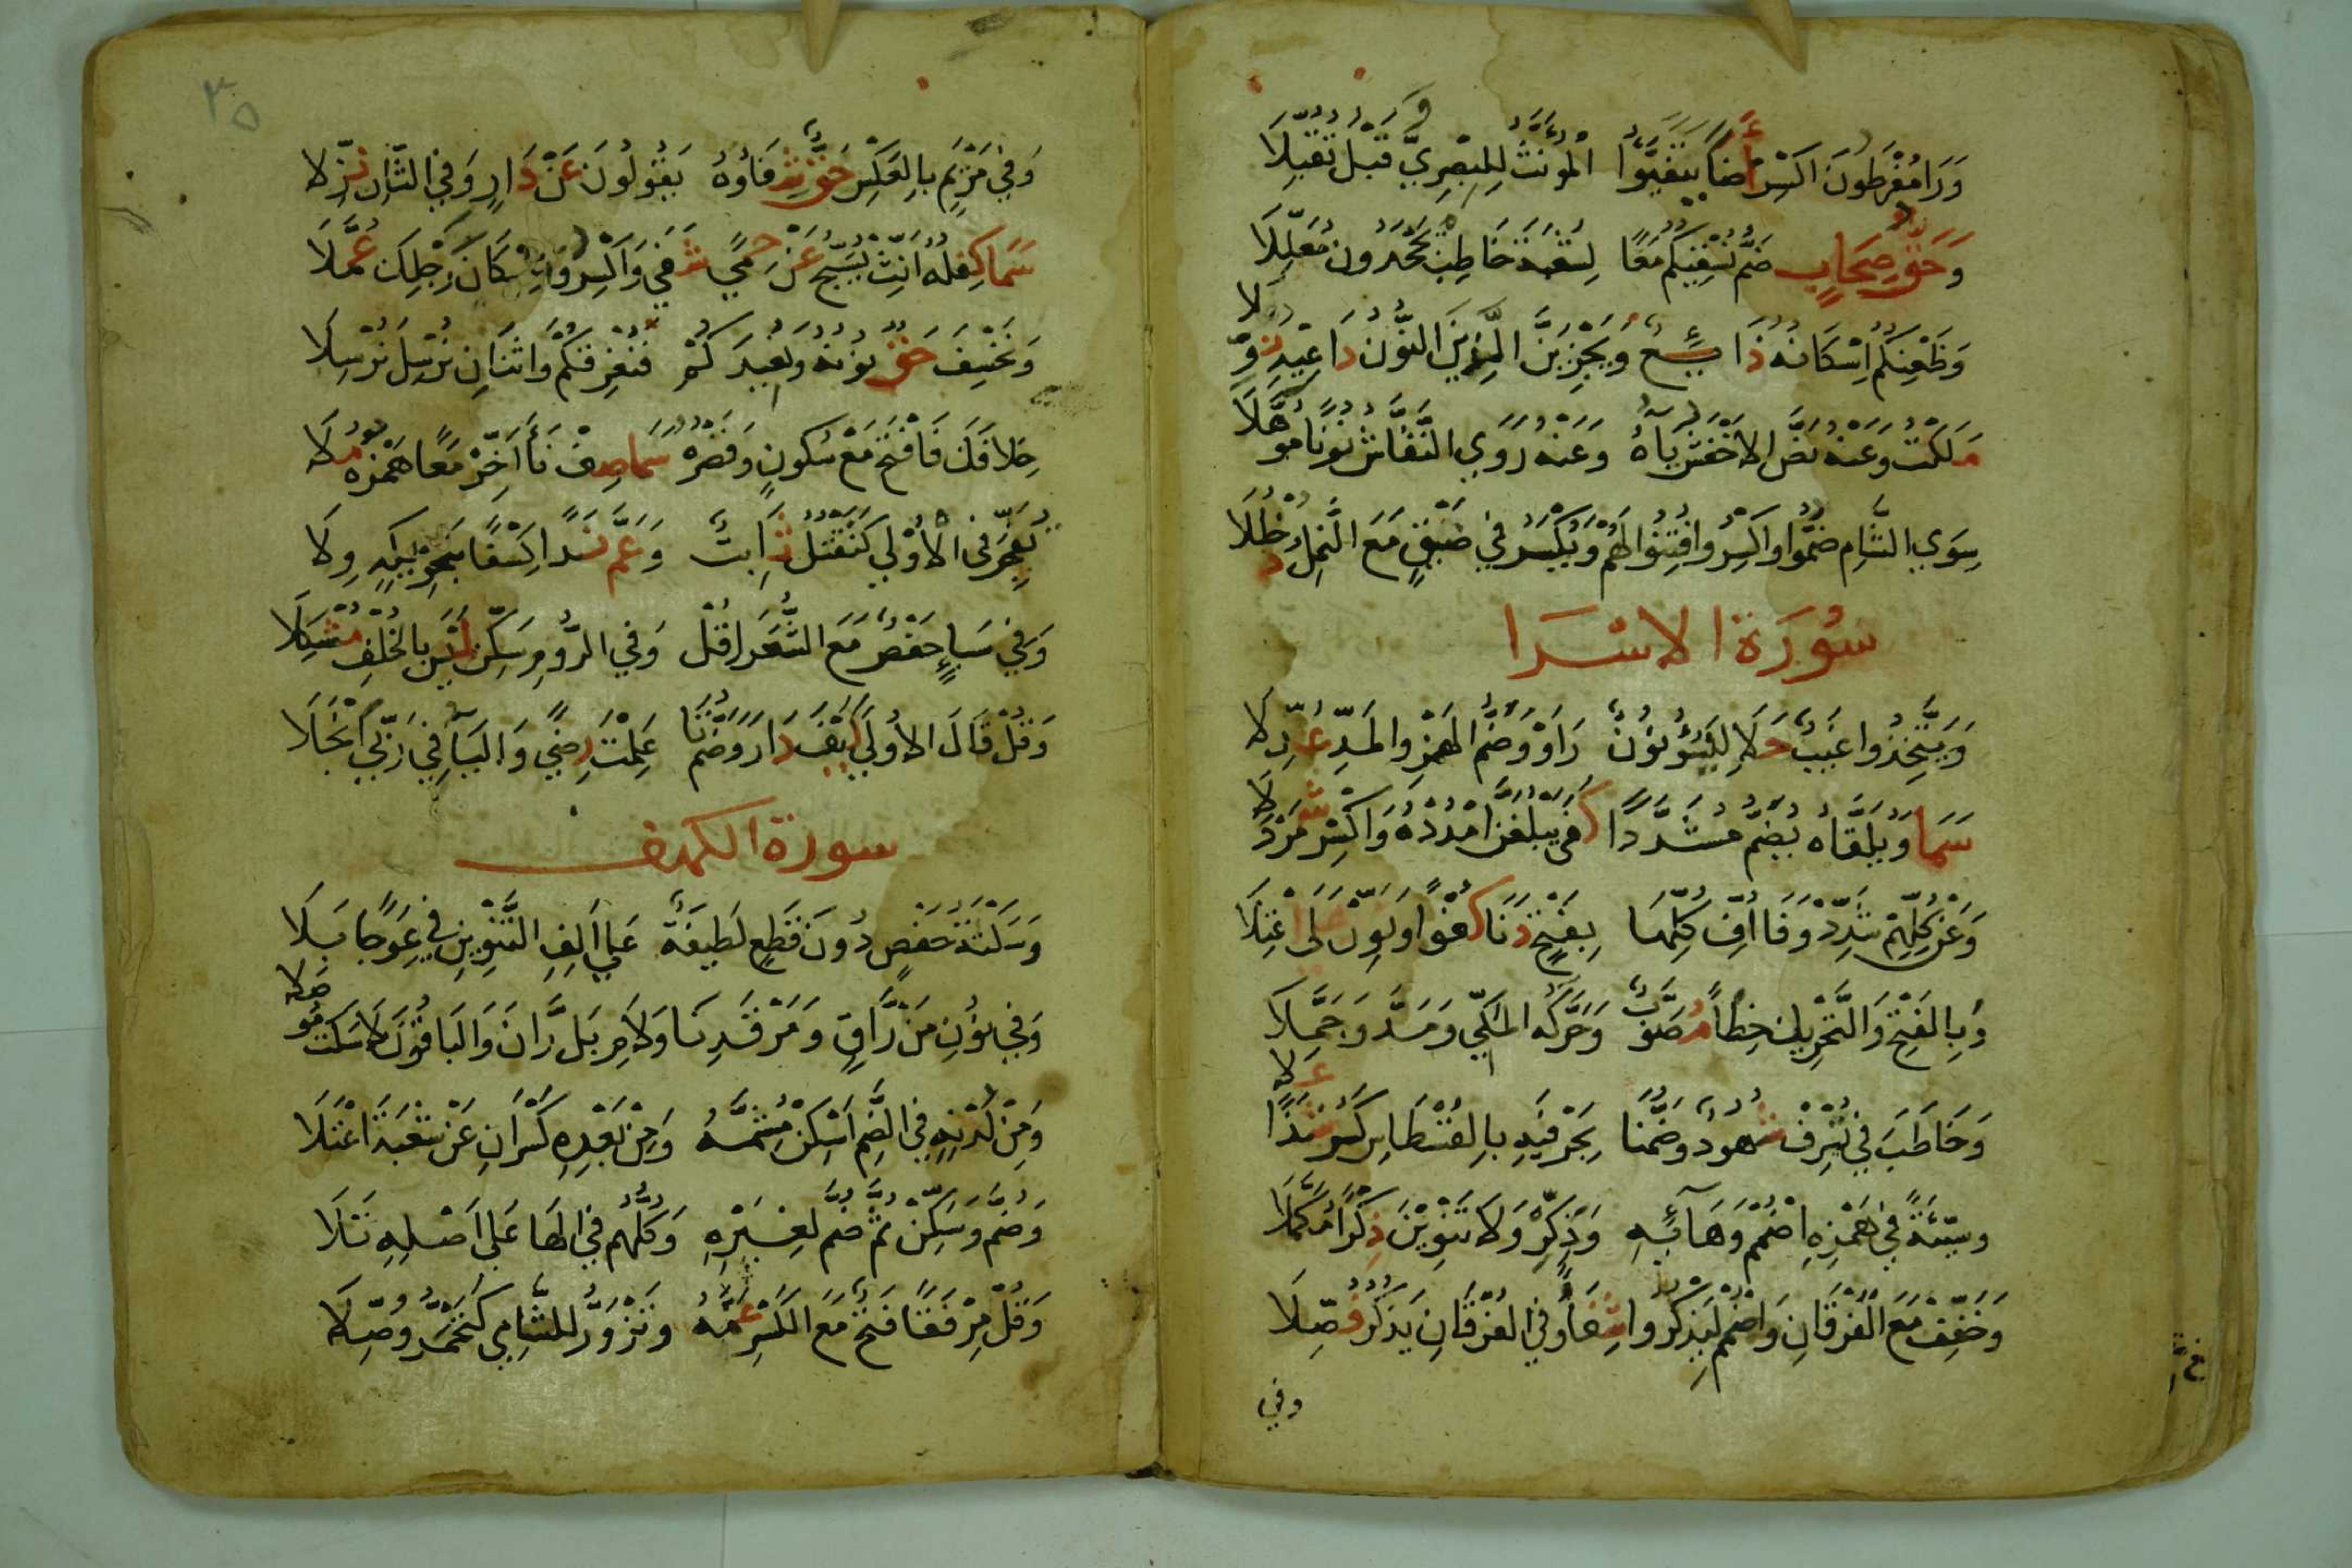 وَرَا مُفْرَطُونَ اكْسِرْ أَضَا يَتَفَيَّؤُا الْمُؤَنَّثُ لِلْبَصْرِيِّ قَبْلُ تُقُبِّلَا
وَحَقُّ صِحَابٍ ضَمَّ نُسْقِيكُمُ مَعًا لِشُعْبَةَ خَاطِبْ يَجْحَدُونَ مُعَلَّلَا
وَظَعْنِكُمُ إِسْكَانُهُ ذَائِعٌ وَيَجْزِيَنَّ الَّذِينَ النُّونُ دَاعِيهِ نُوِّلَا
مَلَكْتُ وَعَنْهُ نَصَّ الاخْفَشُ يَآءَهُ وَعَنْهُ رَوَى النَّقَّاشُ نُونًا مُوَهَّلَا
سِوَى الشَّامِ ضُمُّوا وَاكْسِرُوا فُتِنُوا لَهُمْ وَيُكْسَرُ فِي ضَيْقٍ مَعَ النَّمْلِ دُخْلُلَا
سُورَةُ الاسْرَا
وَيَتَّخِذُوا غَيْبٌ حَلَا لِيَسُوءَ نُونُ رَاوٍ وَضَمُّ الْهَمْزِ وَالْمَدِّ عُدِّلَا
سَمَا وَيُلَقَّاهُ يُضَمُّ مُشَدَّدًا كَفَى يَبْلُغَنَّ امْدُدْهُ وَاكْسِرْ شَمَرْدَلَا
وَعَنْ كُلِّهِمْ شَدِّدْ وَفَا أُفِّ كُلِّهَا بِفَتْحٍ دَنَا كُفْؤًا وَنَوِّنْ عَلَى اعْتِلَا
وَبِالْفَتْحِ وَالتَّحْرِيكِ خِطْأً مُصَوَّبٌ وَحَرَّكَهُ الْمَكِّي وَمَدَّ وَجَمَّلَا
وَخَاطَبَ فِي نُسْرِفْ شُهُودٌ وَضَمُّنَا بِحَرْفَيْهِ بِالْقُسْطَاسِ كَسْرُ شَذًا عَلَا
وَسَيِّئَةً فِي هَمْزِهِ اضْمُمْ وَهَآئِهِ وَذَكِّرْ وَلَا تَنْوِينَ ذِكْرًا مُكَمَّلَا
وَخَفِّفْ مَعَ الْفُرْقَانِ وَاضْمُمْ لِيَذْكُرُوا شِفَاءً وَفِي الْفُرْقَانِ يَذْكُرُ فُصِّلَا
وفي
٣٥
وَفِي مَرْيَمٍ بِالْعَكْسِ حَقٌّ شِفَاؤُهُ يَقُولُونَ عَنْ دَارٍ وَفِي الثَّانِ نُزِّلَا
سَمَا كِفْلُهُ أَنِّثْ يُسَبِّحُ عَنْ حِمًى شَفَى وَاكْسِرُوا إِسْكَانَ رَجْلِكَ عُمَّلَا
وَنَخْسِفَ حَقٌّ نُونُهُ وَنُعِيدَكُمْ فَنُغْرِقَكُمْ وَاثْنَانِ نُرْسِلَ نُرْسِلَا
خِلَافَكَ فَافْتَحْ مَعْ سُكُونٍ وَقَصْرُهُ سَمَا صِفْ نَأَى أَخِّرْ مَعًا هَمْزَهُ مُلَا
تُفَجِّرَ فِي الْأُولَى كَتَقْتُلَ ثَابِتٌ وَعَمَّ نَدًا كِسْفًا بِتَحْرِيكِهِ وِلَا
وَفِي سَبَإٍ حَفْصٌ مَعَ الشُّعَرَا قُلْ وَفِي الرُّومِ سَكِّنْ لَيْسَ بِالْخُلْفِ مُشْكِلَا
وَقُلْ قَالَ الاُولَى كَيْفَ دَارَ وَضَمُّ تَا عَلِمْتَ رِضًى وَالْيَا فِي رَبِّيَ انْجَلَا
سورة الكهف
وَسَكْتَةُ حَفْصٍ دُونَ قَطْعٍ لَطِيفَةٌ عَلَى أَلِفِ التَّنْوِينِ فِي عِوَجًا بَلَا
وَفِي نُونِ مَنْ رَّاقٍ وَمَرْقَدِنَا وَلَامِ بَلْ رَّانَ وَالْبَاقُونَ لَا سَكْتَ مُوصَلَا
وَمِنْ لَدْنِهِ فِي الضَّمِّ أَسْكِنْ مُشِمَّهُ وَمِنْ بَعْدِهِ كَسْرَانِ عَنْ شُعْبَةَ اعْتَلَا
وَضُمَّ وَسَكِّنْ ثُمَّ ضُمَّ لِغَيْرِهِ وَكُلُّهُمُ فِي الْهَا عَلَى أَصْلِهِ تَلَا
وَقُلْ مِرْفَقًا فَتْحٌ مَعَ الْكَسْرِ عَمَّهُ وَتَزْوَرُّ لِلشَّامِي كَتَحْمَرُّ وُصِّلَا